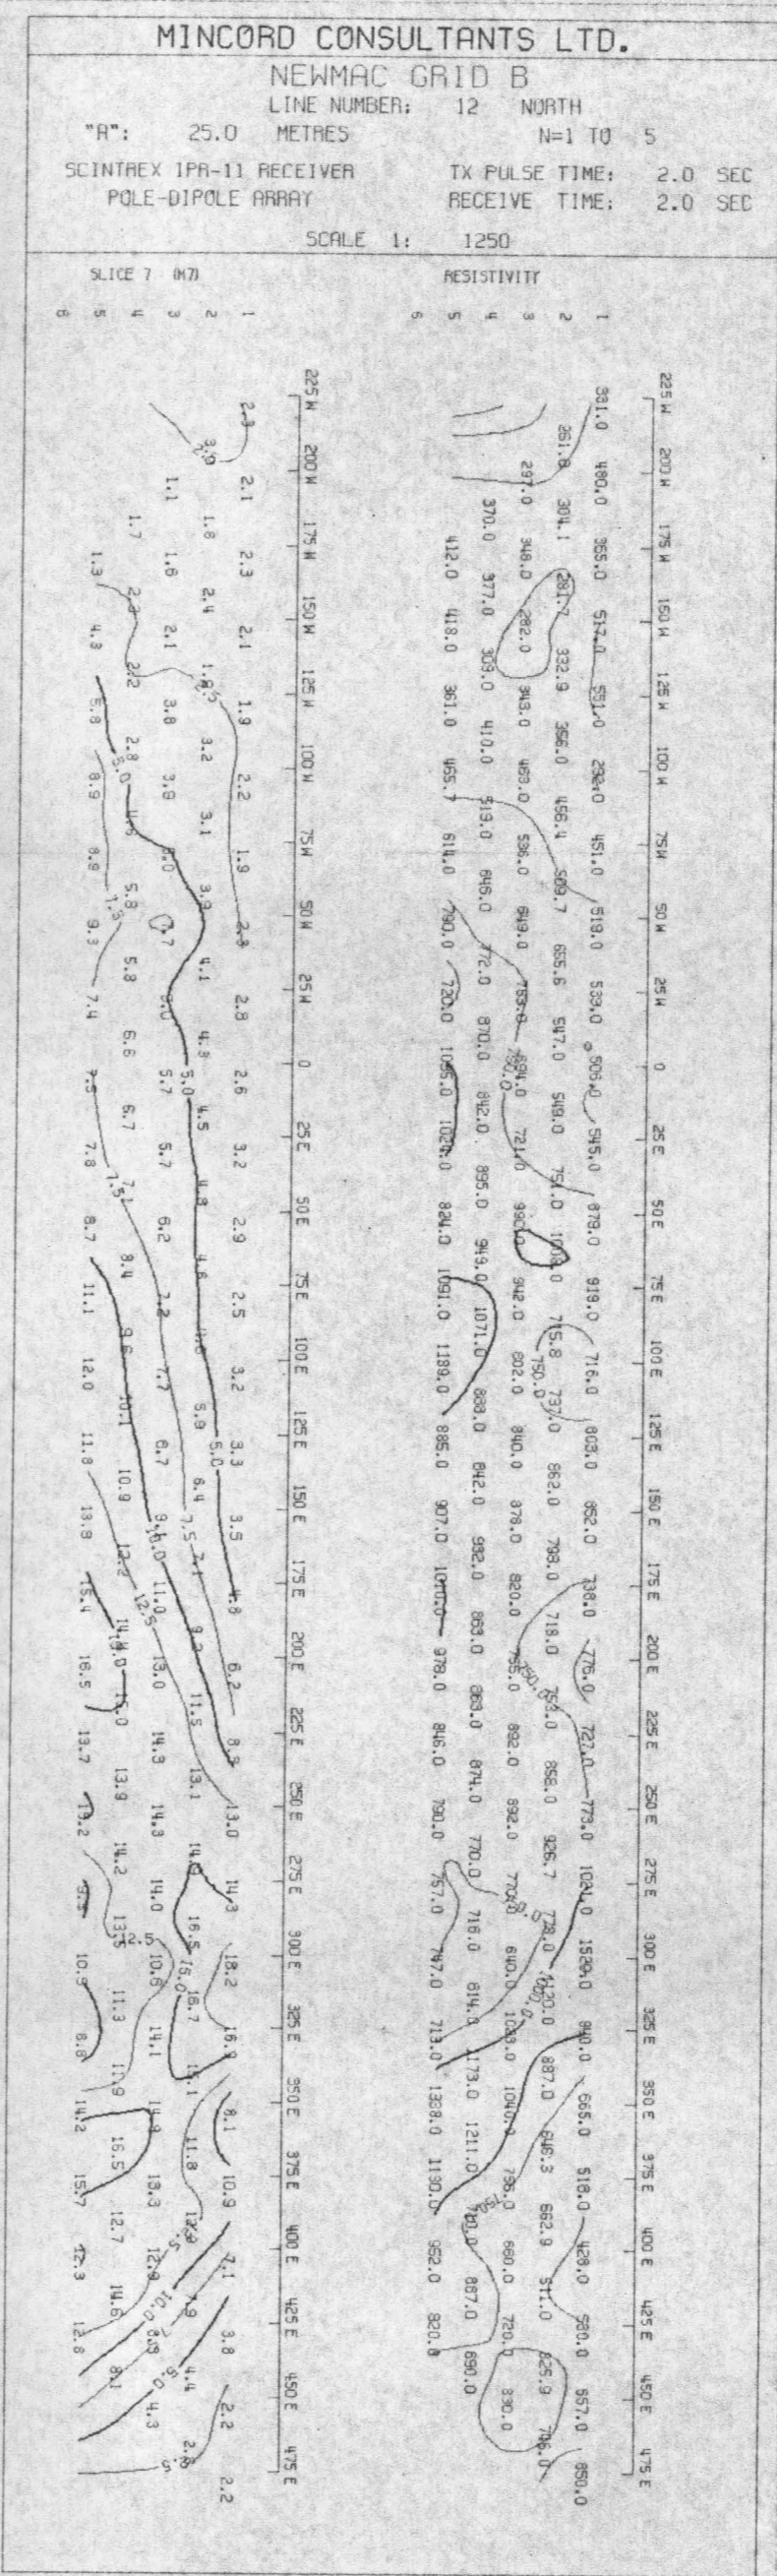 MINCORD CONSULTANTS LTD.
NEWMAC GRID B
LINE NUMBER: 12 NORTH
"A": 25.0 METRES N=1 TO 5
SCINTREX IPR-11 RECEIVER TX PULSE TIME: 2.0 SEC
POLE-DIPOLE ARRAY RECEIVE TIME: 2.0 SEC
SCALE 1: 1250
SLICE 7 (M7) RESISTIVITY
6 5 4 3 2 1 6 5 4 3 2 1
225 W 200 W 175 W 150 W 125 W 100 W 75 W 50 W 25 W 0 25 E 50 E 75 E 100 E 125 E 150 E 175 E 200 E 225 E 250 E 275 E 300 E 325 E 350 E 375 E 400 E 425 E 450 E 475 E
331.0 480.0 365.0 517.0 551.0 292.0 451.0 519.0 539.0 506.0 545.0 879.0 919.0 716.0 803.0 852.0 738.0 776.0 727.0 773.0 1024.0 1529.0 940.0 665.0 518.0 428.0 580.0 657.0 850.0
261.8 304.1 281.7 332.9 356.0 456.4 509.7 655.6 547.0 549.0 754.0 715.8 737.0 862.0 798.0 718.0 753.0 858.0 926.7 778.0 1120.0 887.0 646.3 662.9 511.0 825.9 706.0
297.0 348.0 282.0 343.0 463.0 536.0 649.0 753.0 694.0 721.0 990.0 942.0 802.0 840.0 878.0 820.0 755.0 892.0 892.0 770.0 640.0 1023.0 1040.0 795.0 660.0 720.0 830.0
370.0 377.0 309.0 410.0 519.0 646.0 772.0 870.0 842.0 895.0 949.0 1071.0 888.0 842.0 932.0 863.0 863.0 874.0 770.0 716.0 614.3 1173.0 1211.0 780.0 887.0 690.0
412.0 418.0 361.0 465.7 614.0 790.0 720.0 1095.0 1024.0 824.0 1091.0 1189.0 885.0 907.0 1010.0 978.0 846.0 790.0 757.0 747.0 713.0 1338.0 1190.0 952.0 820.0
225 W 200 W 175 W 150 W 125 W 100 W 75 W 50 W 25 W 0 25 E 50 E 75 E 100 E 125 E 150 E 175 E 200 E 225 E 250 E 275 E 300 E 325 E 350 E 375 E 400 E 425 E 450 E 475 E
2.3 2.1 2.3 2.1 1.9 2.2 1.9 2.3 2.8 2.6 3.2 2.9 2.5 3.2 3.3 3.5 4.8 6.2 8.9 13.0 14.3 18.2 16.9 8.1 10.9 7.1 3.8 2.2 2.2
3.9 1.8 2.4 1.8 3.2 3.1 3.9 4.1 4.3 4.5 4.8 4.6 4.8 5.9 6.4 7.1 9.2 11.5 13.1 14.9 16.5 16.7 15.1 11.8 12.9 7.9 4.4 2.8
1.1 1.6 2.1 3.8 3.9 5.0 7.7 5.0 5.7 5.7 6.2 7.2 7.7 8.7 9.4 11.0 13.0 14.3 14.3 14.0 10.6 14.1 14.9 13.3 12.9 8.8 4.3
1.7 2.3 2.2 2.8 4.6 5.8 5.8 6.6 6.7 7.1 8.4 9.6 10.1 10.9 12.2 14.4 15.0 13.9 14.2 13.5 11.3 11.9 16.5 12.7 14.6 8.1
1.3 4.3 5.8 8.9 8.9 9.3 7.4 7.5 7.8 8.7 11.1 12.0 11.8 13.8 15.4 16.5 13.7 14.2 9.5 10.9 8.8 14.2 15.7 12.3 12.8